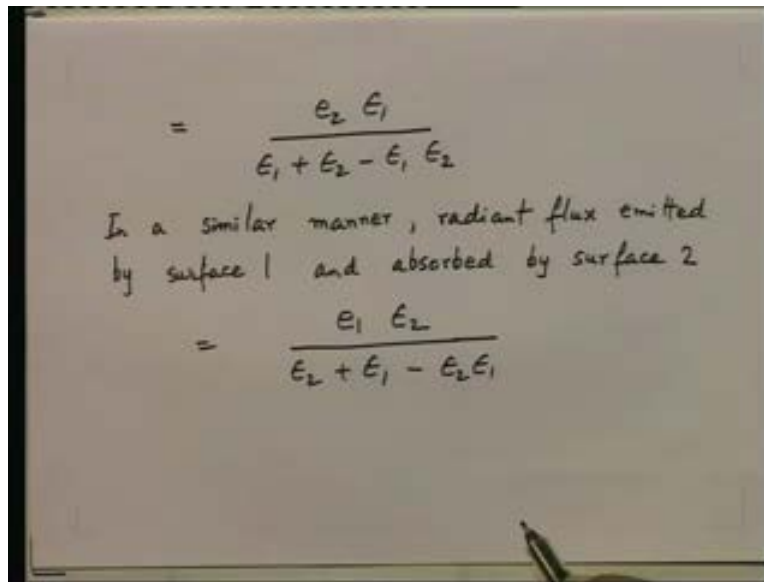 = e₂ ϵ₁ / ϵ₁ + ϵ₂ - ϵ₁ ϵ₂
In a similar manner, radiant flux emitted
by surface 1 and absorbed by surface 2
= e₁ ϵ₂ / ϵ₂ + ϵ₁ - ϵ₂ϵ₁